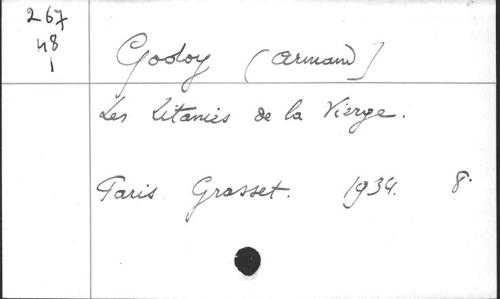 267
48
1
Godoy (Armand)
Les Litanies de la Vierge.
Paris Grasset. 1934. 8°